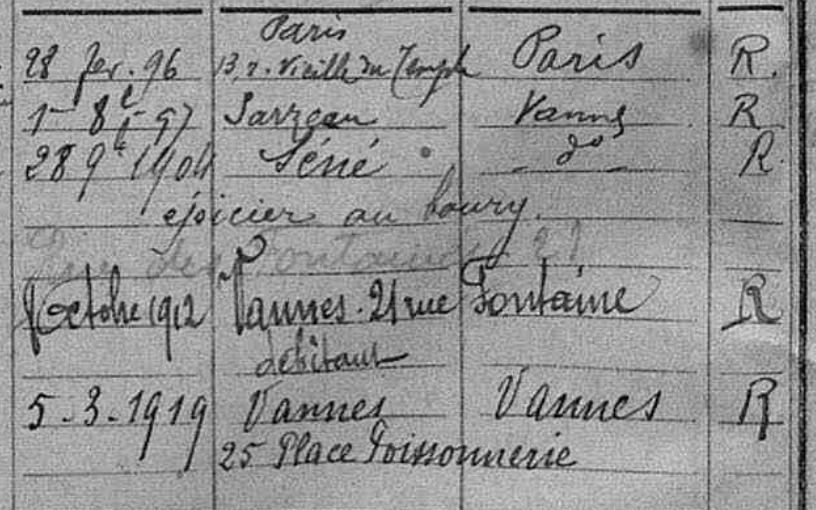 Paris
28 fev. 96 13, r. Vieille du Temple Paris R.
1 8e 97 Sarzeau Vannes R
28 9e 1904 Séné do R.
épicier au bourg.
Rue des Fontaines 21
Octobre 1912 Vannes. 21 rue Fontaine R
débitant
5-3-1919 Vannes Vannes R
25 Place Poissonnerie